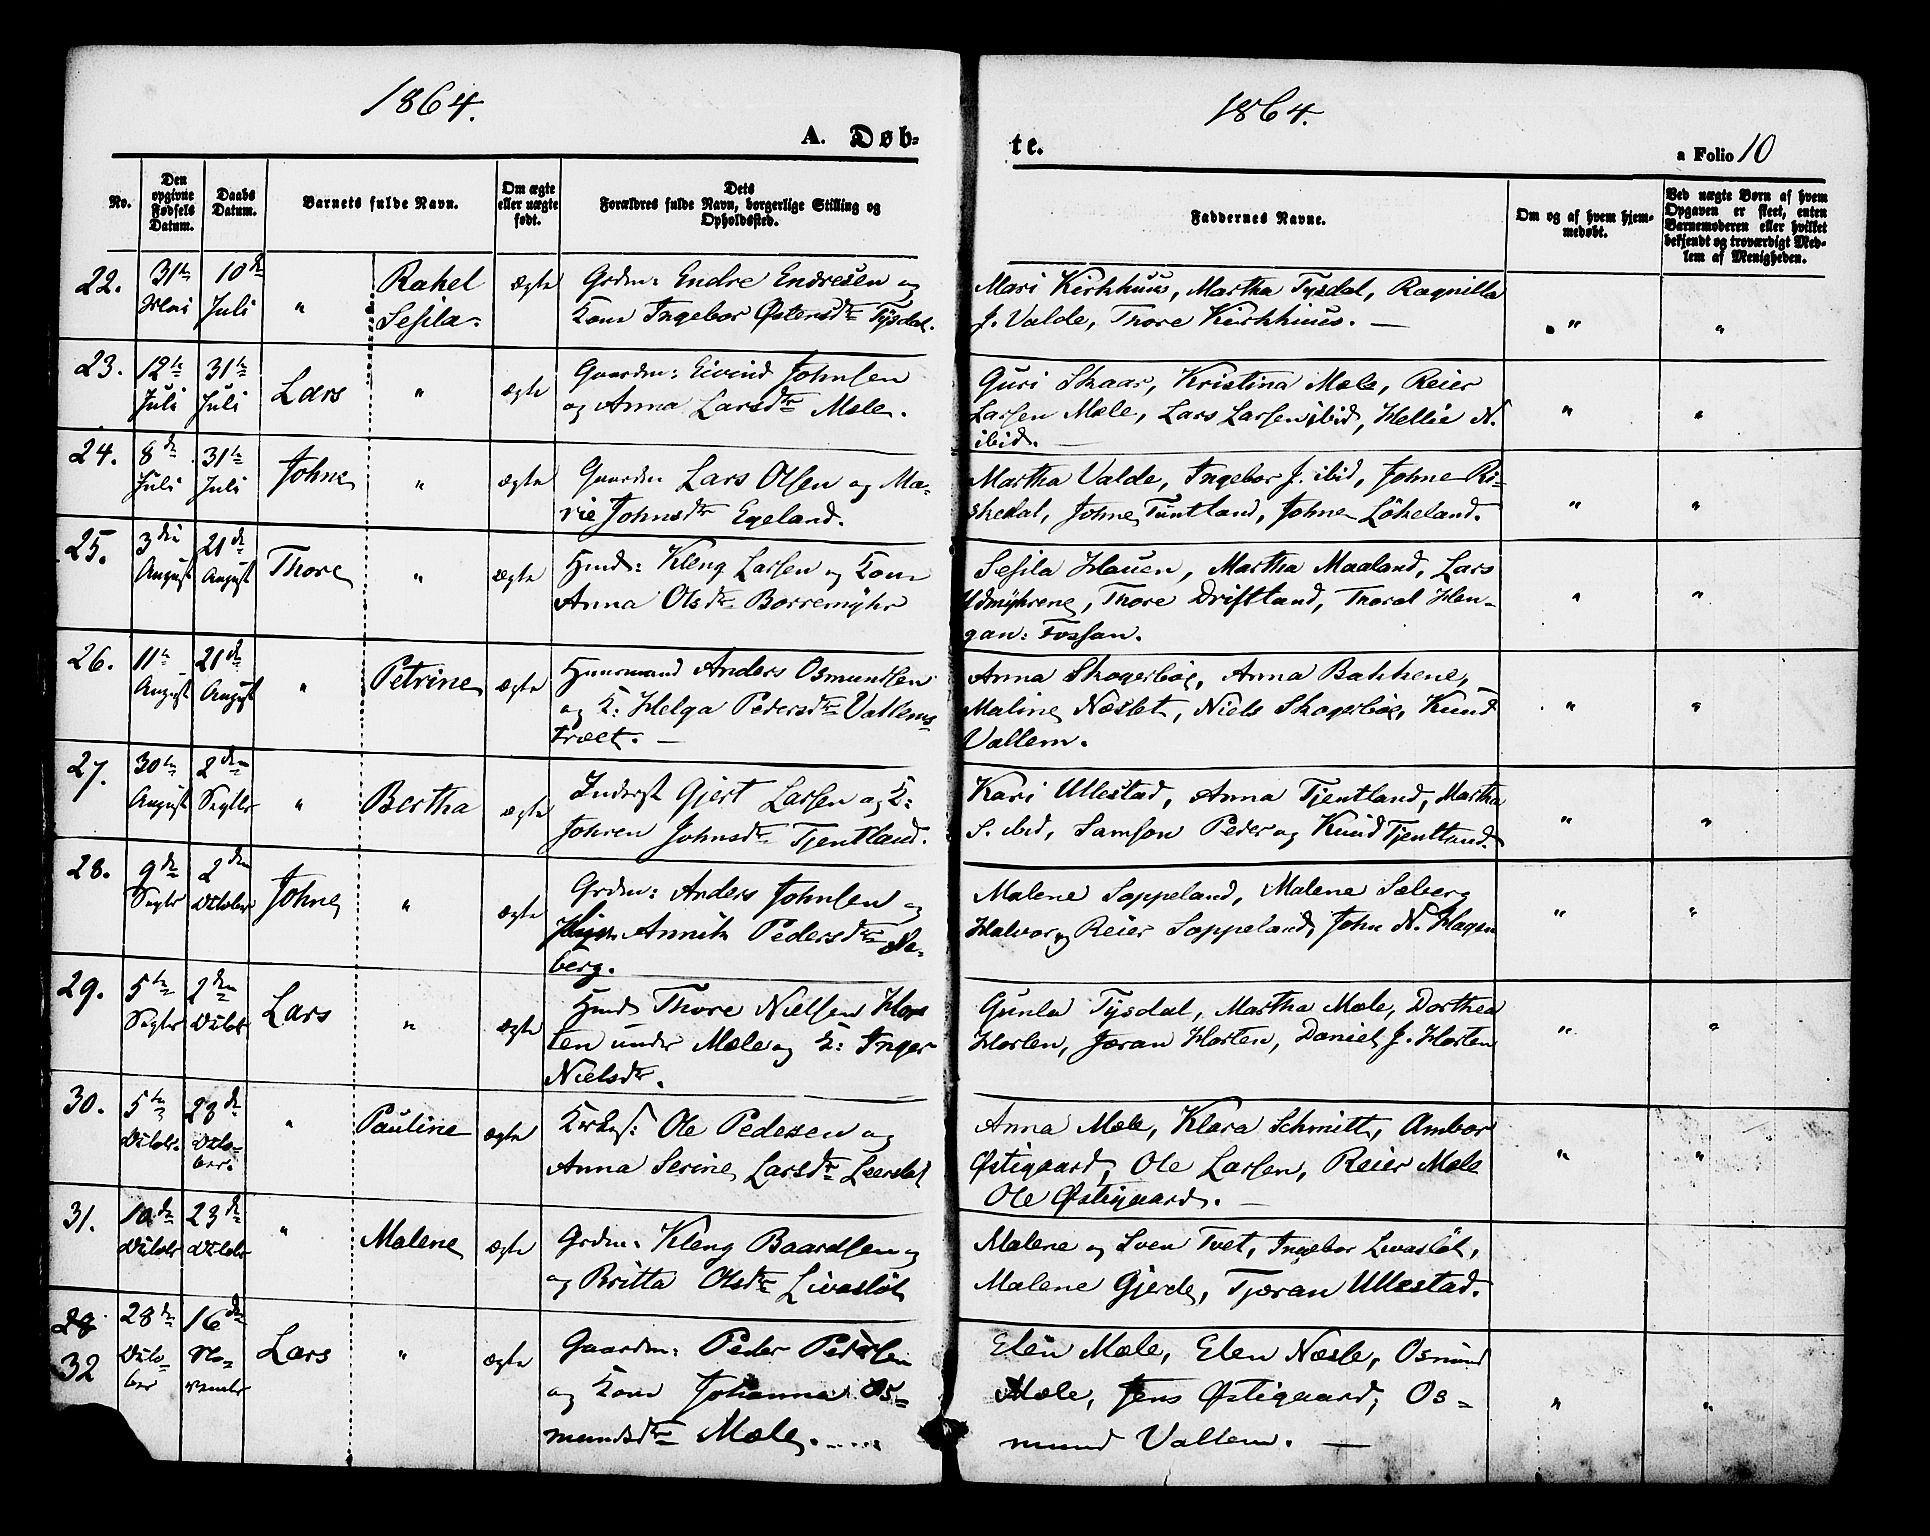 1864.
1864.
A. Døb-
te.
a Folio 10
No.
Den opgivne Fødsels Datum.
Daabs Datum.
Barnets fulde Navn.
Om ægte eller uægte født.
Dets Forældres fulde Navn, borgerlige Stilling og Opholdssted.
Faddernes Navne.
Om og af hvem hjemmedøbt.
Ved uægte Børn af hvem Opgaven er skeet, enten Barnemoderen eller hvilket bekjendt og troværdigt Medlem af Menigheden.
22. 31te Mai 10de Juli " Rakel Sesila. ægte
Grdm: Endre Endresen og
Kone Ingebor Østensdtr Tysdal.
Mari Kirkhuus, Martha Tysdal, Ragnilla
J. Valde, Thore Kirkhuus. —
" "
23. 12te Juli 31te Juli Lars " ægte
Gaardm: Eivind Johnsen
og Anna Larsdtr Mæle.
Guri Skaar, Kristina Mæle, Reier
Larsen Mæle, Lars Larsen ibid, Hellie N.
ibid. —
" "
24. 8de Juli 31te Juli Johne " ægte
Gaardm Lars Olsen og Ma-
rie Johnsdtr Egeland.
Martha Valde, Ingebor J. ibid, Johne Ri-
skedal, Johne Tuntland, Johne Løkeland.
" "
25. 3die August 21de August Thore " ægte
Huusm: Kleng Larsen og Kone
Anna Olsdtr Borremyhr
Sesila Hauen, Martha Maaland, Lars
Udmyhrene, Thore Driftland, Thoral Hen-
gan: Fossan.
" "
26. 11te August 21de August " Petrine ægte
Huusmand Anders Osmundsen
og K: Helga Pedersdtr Vallems
Træet. —
Anna Skogerboe, Anna Bakkene,
Maline Næslet, Niels Skogerboe, Knud
Vallem.
" "
27. 30te August 2den Septbr " Bertha ægte
Inderst Gjert Larsen og K:
Johren Johnsdtr Tjentland.
Kari Ullestad, Anna Tjentland, Martha
S. ibid, Samson Peder og Knud Tjentland.
" "
28. 9de Septbr 2den October Johne " ægte
Grdm: Anders Johnsen og
Annith Pedersdtr Sæ-
berg.
Malene Soppeland, Malene Sæberg
Halvor og Reier Soppeland, John N. Hagen
" "
29. 5te Septbr 2den Octobr Lars " ægte
Huusm Thore Nielsen Hors
ten under Mæle og K: Inger
Nielsdtr.
Gunla Tysdal, Martha Mæle, Dorthea
Horten, Jøran Horten, Daniel J. Horten
" "
30. 5te Octobr. 23de October " Pauline ægte
Kirkes: Ole Pedesen og
Anna Serine Larsdtr Leerslet
Anna Mæle, Klara Schmitt, Ambor
Østigaard, Ole Larsen, Reier Mæle
Ole Østigaard. —
" "
31. 10de Octobr 23de Octobr " Malene ægte
Grdm: Kleng Baardsen og
og Britta Olsdtr Livasløt
Malene og Sven Tvet, Ingebor Livasløt,
Malene Gjerde, Tjøran Ullestad.
28
32 28de October 16de November Lars " ægte
Gaardm: Peder Pedersen
og Kone Johanna Os-
mundsdtr Mæle.....
Elen Mæle, Elen Næsle, Osmund
Mæle, Jens Østigaard, Os-
mund Vallem. —
" "